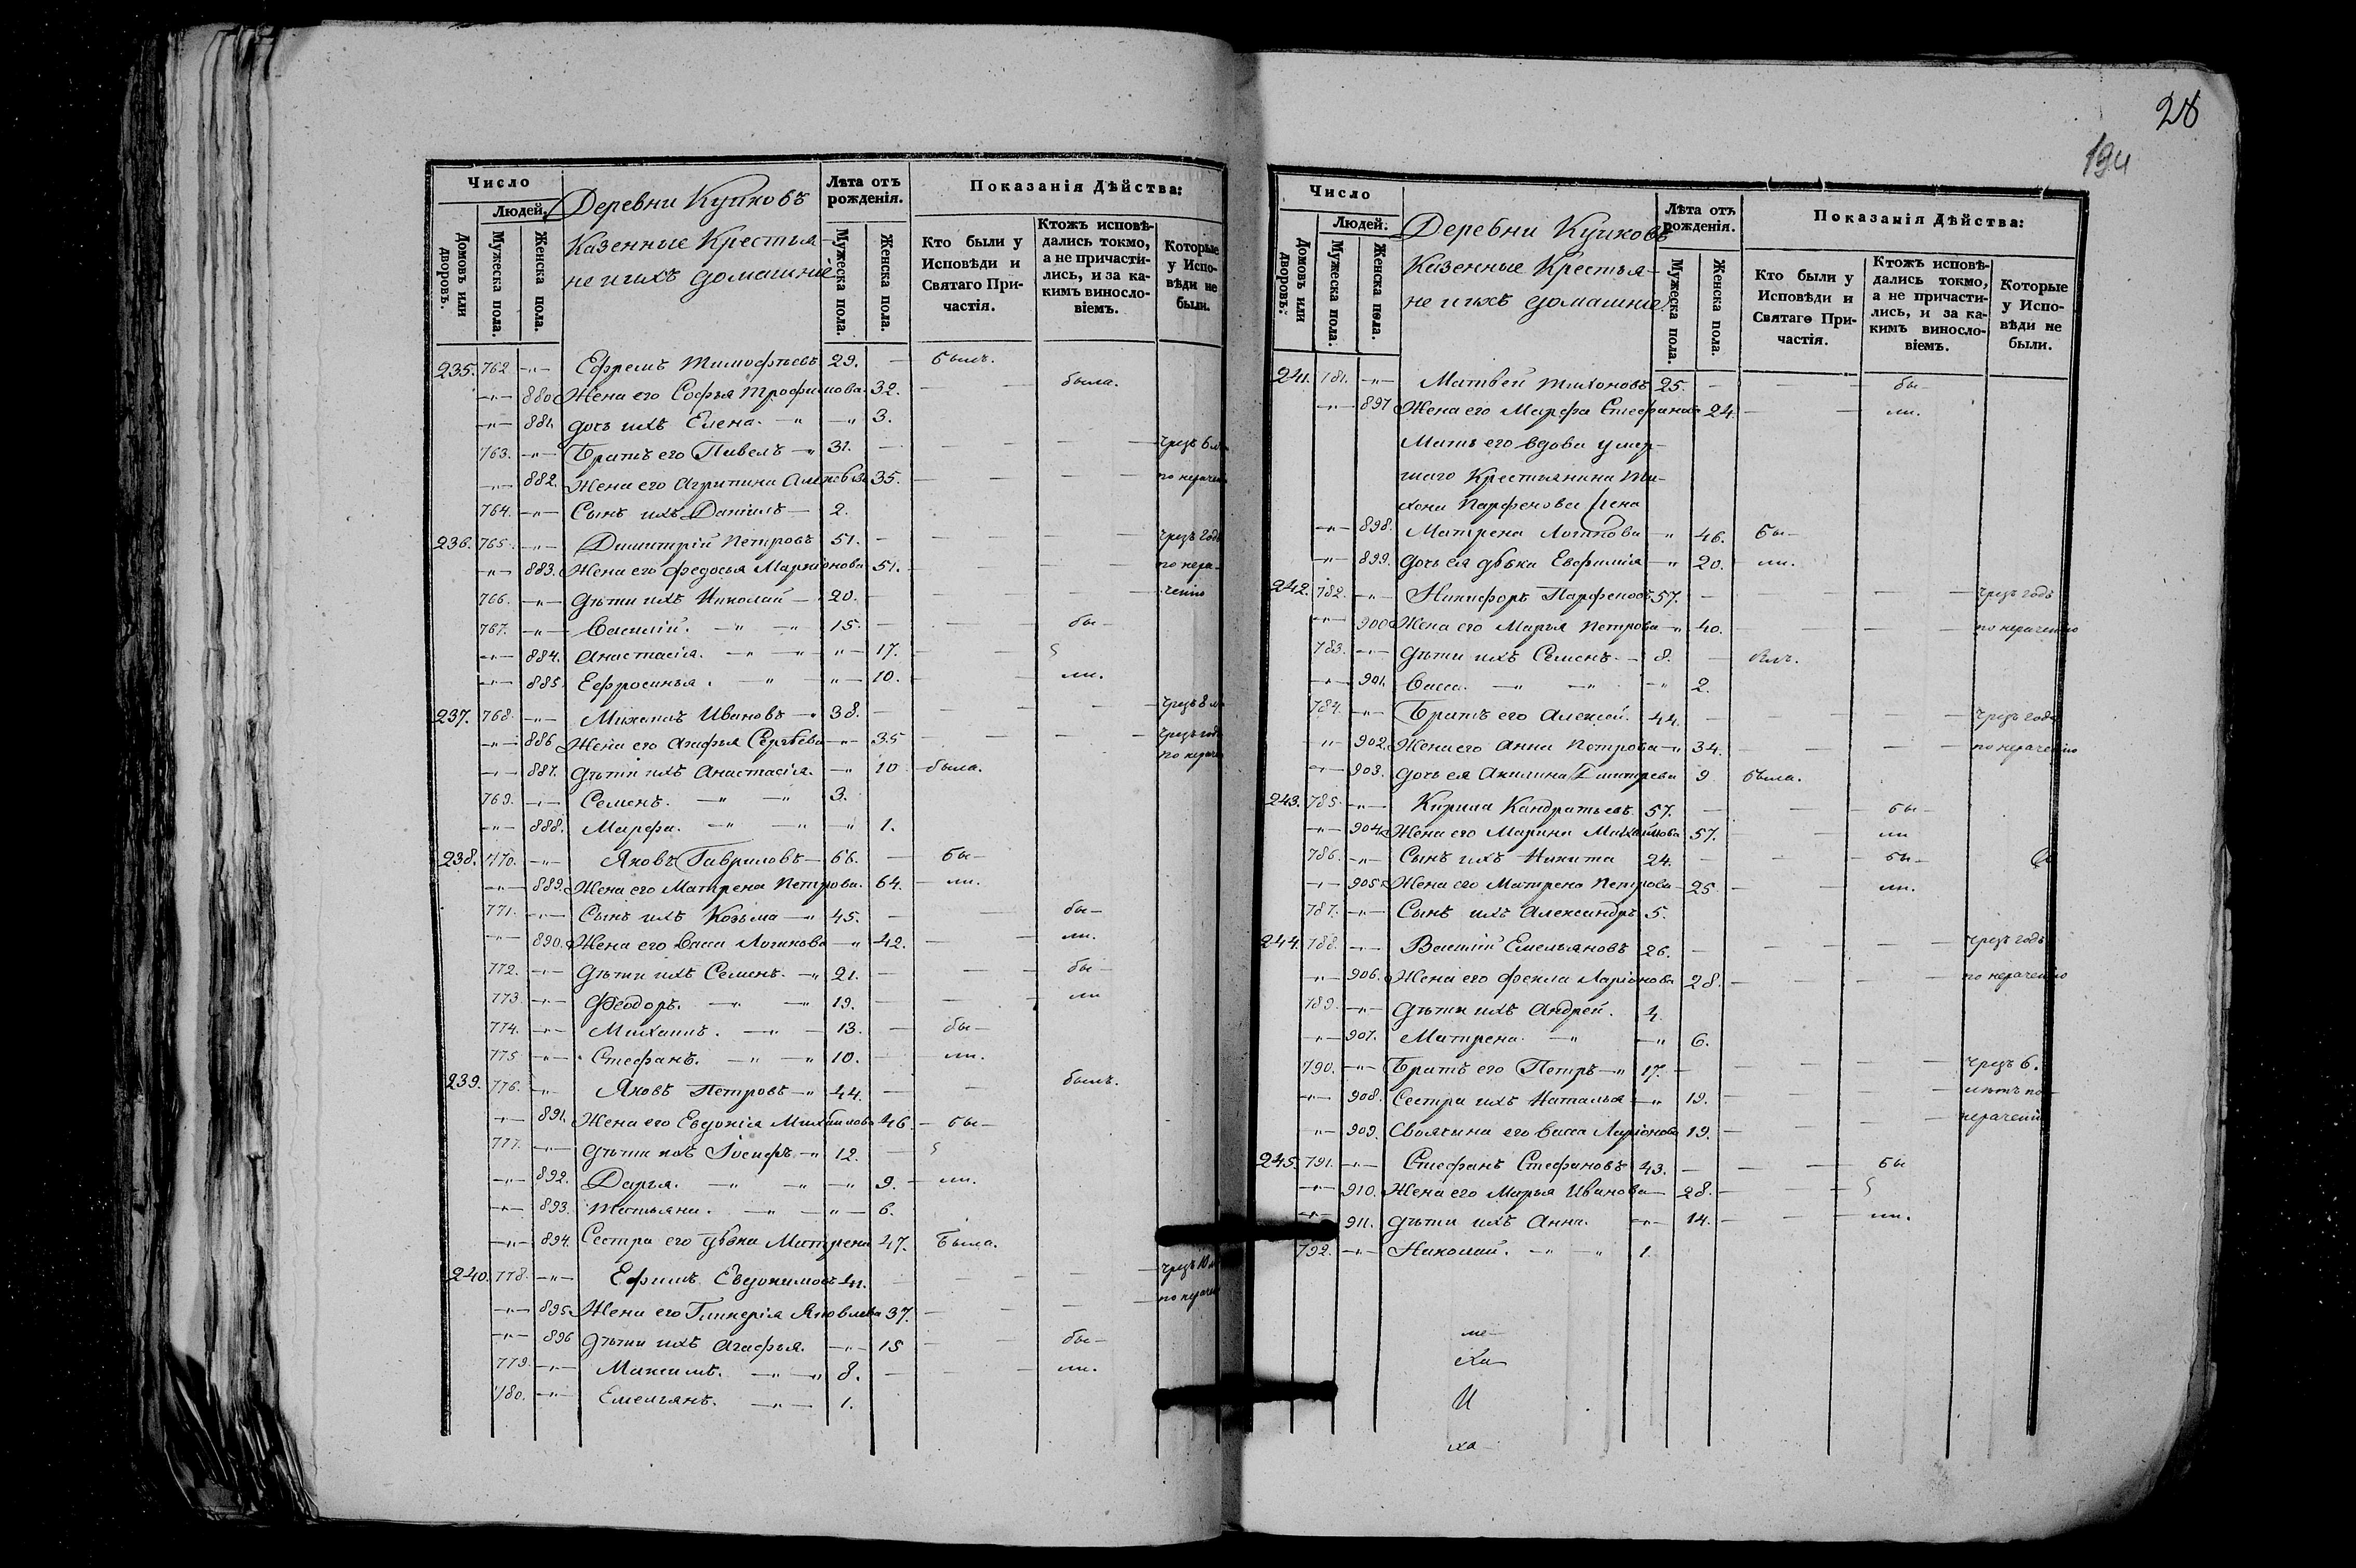 28
194
Число
Людей.
Домовъ или дворовъ.
Мужеска пола.
Женска пола.
Деревни Кучковъ
Казенные Крестья-
не и ихъ домашніе
Лѣта отъ рожденія.
Мужеска пола.
Женска пола.
Показанія Дѣйства:
Кто были у Исповѣди и Святаго При-частія.
Ктожъ исповѣ-дались токмо, а не причасти-лись, и за ка-кимъ виносло-віемъ.
Которые у Испо-вѣди не были.
235. 762. Ефремъ Тимофѣевъ 29. — былъ.
880 Жена его Софья Трофимова 32. — — была.
881. дочь ихъ Елена. 3.
763. Братъ его Павелъ 31. — — — — чрезъ 6
882. Жена его Агрипина 35. — — —
764. Сынъ ихъ Даніилъ 2.
236. 765. Димитрій Петровъ 51. — — — — чрезъ годъ
883. Жена его Федосья 51. — — — по нера-
766. Дѣти ихъ Николай 20. — — — — ченію
767. Василій. 15. — — бы-
884. Анастасія. 17. —
885. Ефросинья. 10. — ли.
237. 768. Михаилъ Ивановъ 38. — — — — чрезъ 8
886 Жена его Агафья Сергѣева 35 — — — — чрезъ годъ
887. дѣти ихъ Анастасія. 10 — была. по нераче
769. Семенъ. 3.
888. Марфа. 1.
238. 770. Яковъ Гавриловъ 66. — бы-
889. Жена его Матрена Петрова. 64. — ли.
771. Сынъ ихъ Козьма 45. — — бы-
890. Жена его Васса Логинова 42. — — ли.
772. дѣти ихъ Семенъ. 21. — — бы-
773. Феодоръ. 19. — — ли
774. Михаилъ. 13. — бы-
775 Стефанъ. 10. — ли.
239. 776. Яковъ Петровъ 44. — — былъ.
891. Жена его Евдокія Михайлова 46. — бы-
777. дѣти ихъ Іосифъ 12. —
892. Дарья. 9. — ли.
893. Татьяна. 6.
894. Сестра его дѣвка Матрена 47. Была.
240. 778. Ефимъ Евдокимовъ 41. — — — — чрезъ 10
895 Жена его Гликерія Яковлева 37. — — — по нераче
896 дѣти ихъ Агафья. 15 — — бы-
779. Максимъ. 8. — — ли.
780. Емельянъ. 1.
Число
Людей.
Домовъ или дворовъ.
Мужеска пола.
Женска пола.
Деревни Кучковъ
Казенные Крестья-
не и ихъ домашніе
Лѣта отъ рожденія.
Мужеска пола.
Женска пола.
Показанія Дѣйства:
Кто были у Исповѣди и Святаго При-частія.
Ктожъ исповѣ-дались токмо, а не причасти-лись, и за ка-кимъ виносло-віемъ.
Которые у Испо-вѣди не были.
241. 781. Матвей Тихоновъ 25. — — — бы-
897 Жена его Марфа Стефанова 24. — — ли.
Мать его вдова умер-
шаго Крестьянина Ти-
хона Парфенова жена
898. Матрена Логинова 46. Бы-
899. дочь ея дѣвка Евфимія 20. — ли.
242. 782. Никифоръ Парфеновъ 57. — — — — чрезъ годъ
900 Жена его Марья Петрова 40. — — — по нераченію
783. дѣти ихъ Семенъ. 8. — былъ.
901. Васса. 2.
784. Братъ его Алексей. 44. — — — — чрезъ годъ
902. Жена его Анна Петрова 34. — — — — по нераченію
903. дочь ея Акилина Дмитрева 9 была.
243. 785. Кирила Кандратьевъ 57. — — бы-
904. Жена его Марина Михайлова 57. — — ли
786. Сынъ ихъ Никита 24. — — бы-
905. Жена его Матрена Петрова 25 — — ли.
787. Сынъ ихъ Александръ 5.
244. 788. Василій Емельяновъ 26. — — — — чрезъ годъ
906. Жена его Фекла Ларіонова 28. — — — — по нераченію
789. дѣти ихъ Андрей. 4.
907. Матрена. 6.
790. Братъ его Петръ 17. — — — — чрезъ 6.
908. Сестра ихъ Наталья 19. — — — лѣтъ по
909. Своячына его Васса Ларіонова 19. — — — нераченію
245. 791. Стефанъ Стефановъ 43. — — — бы
910. Жена его Марья Иванова 28. — —
911. дѣти ихъ Анна. 14. — — ли.
792. Николай. 1.
ме-
ха
И
ха